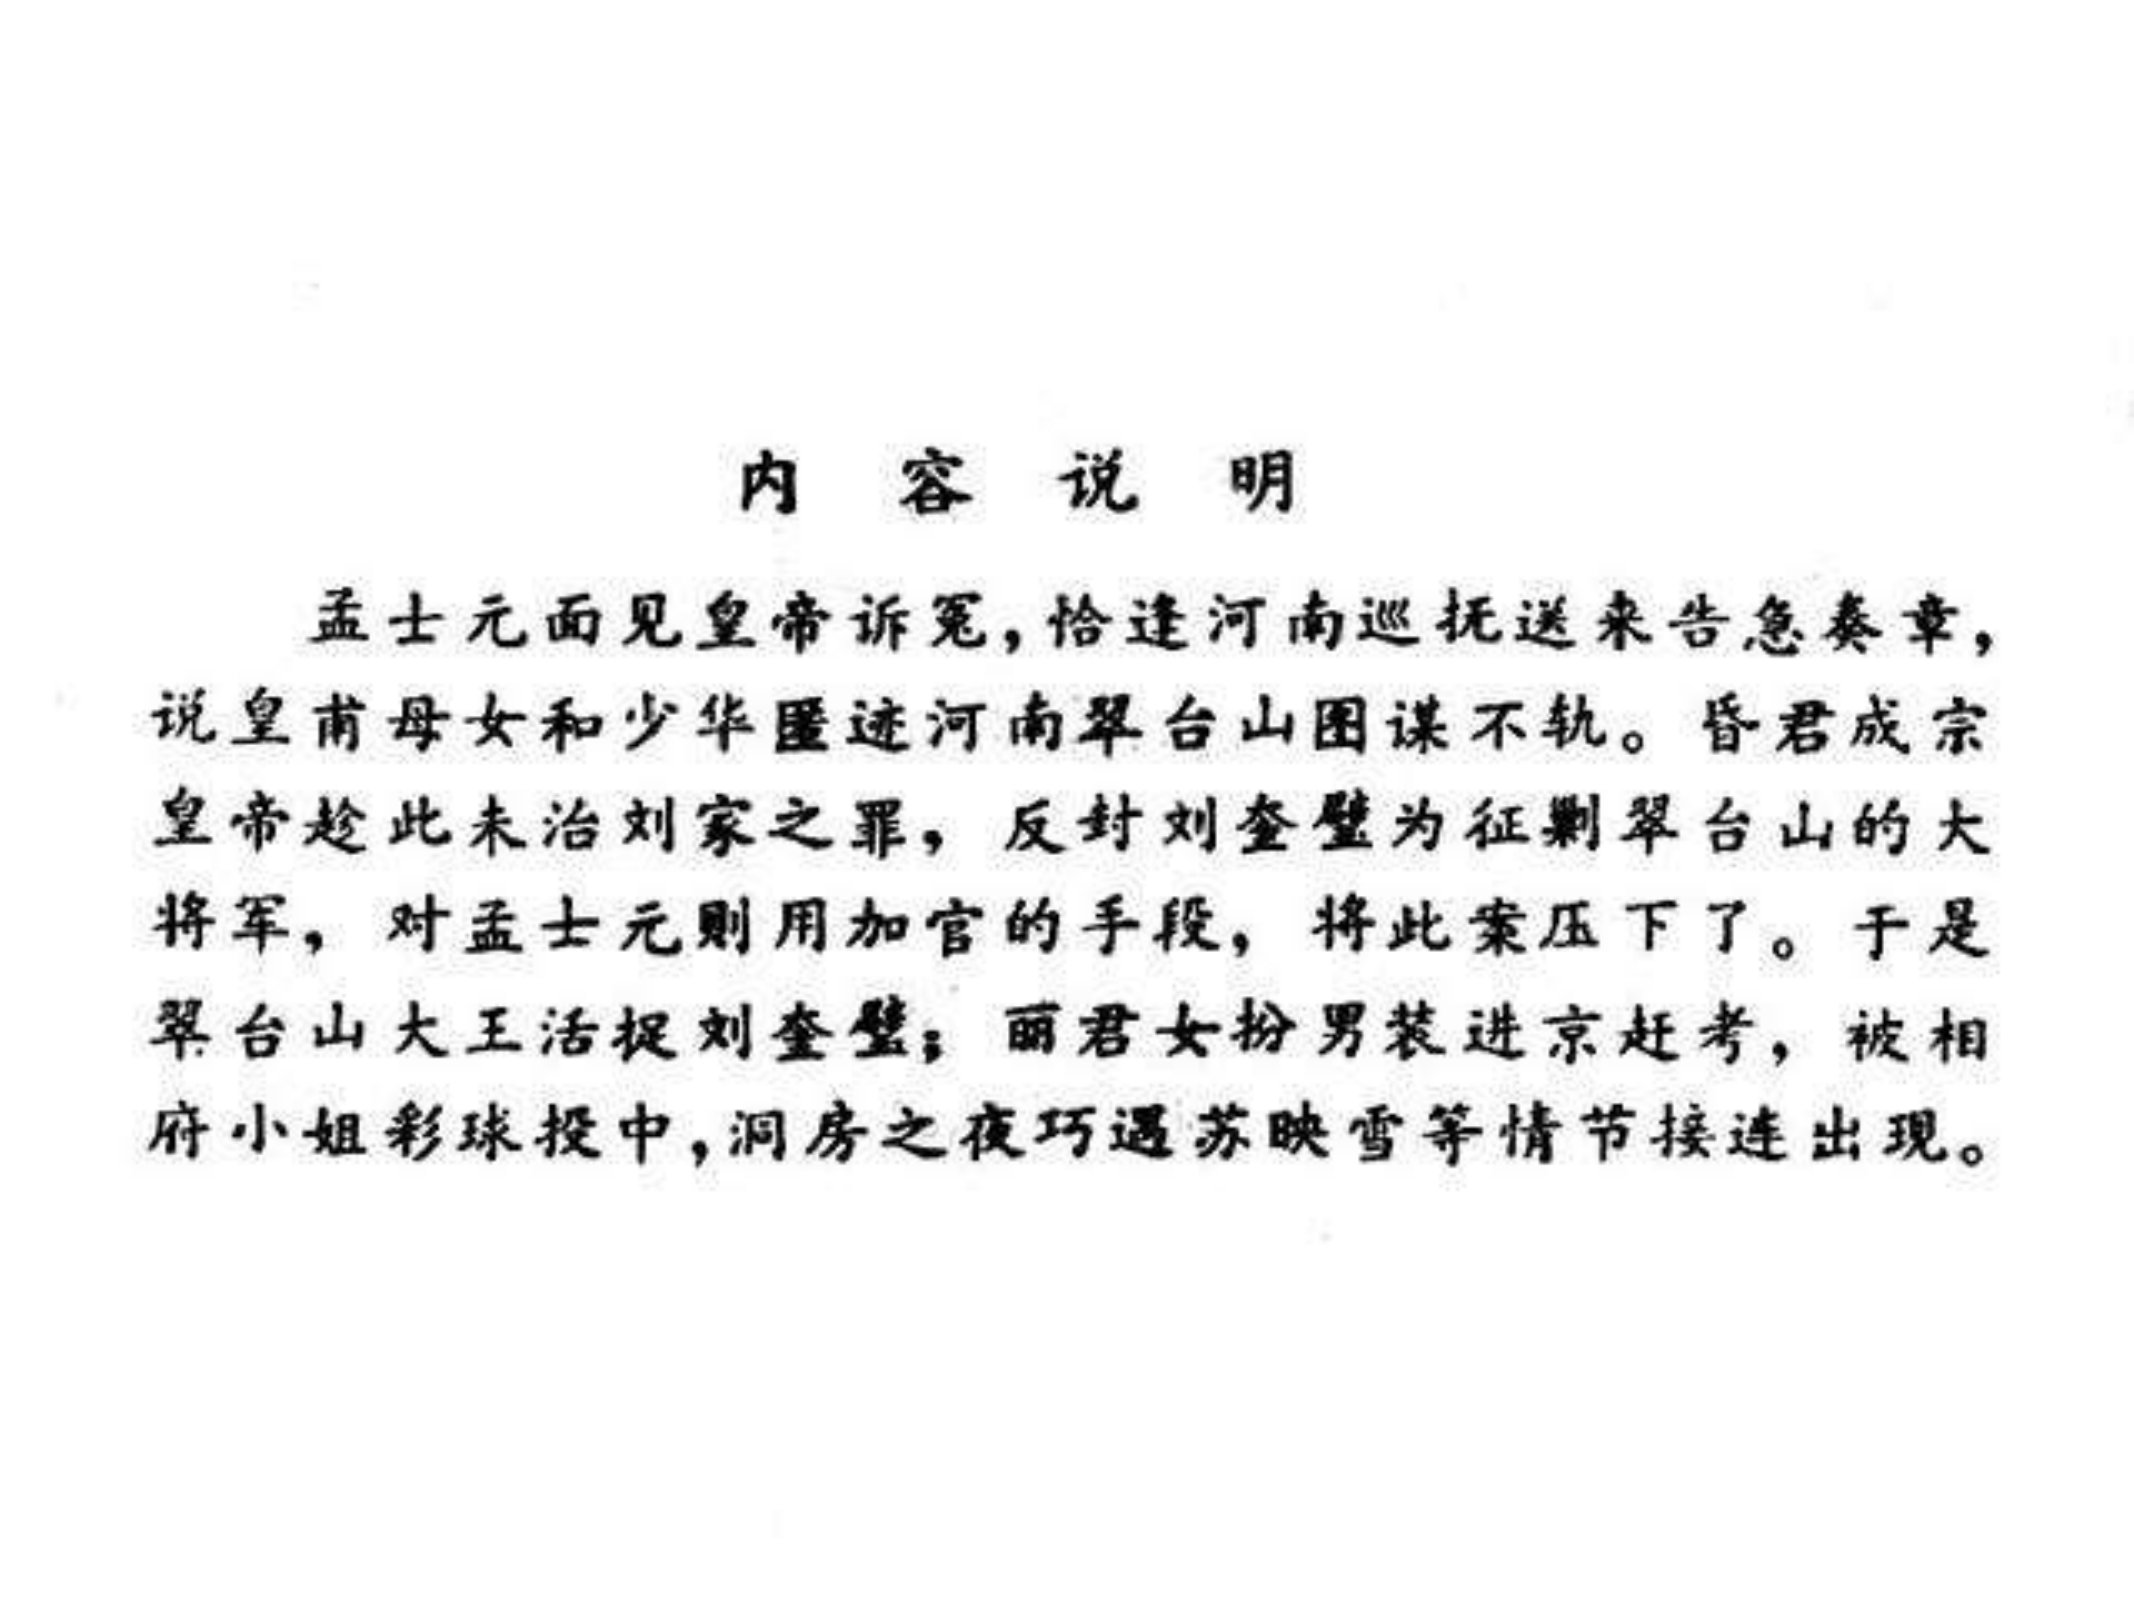 内容说明
孟士元面见皇帝诉冤,恰逢河南巡抚送来告急奏章,
说皇甫母女和少华匿迹河南翠台山图谋不轨。昏君成宗
皇帝趁此未治刘家之罪，反封刘奎璧为征剿翠台山的大
将军，对孟士元则用加官的手段，将此案压下了。于是
翠台山大王活捉刘奎璧；丽君女扮男装进京赶考，被相
府小姐彩球投中,洞房之夜巧遇苏映雪等情节接连出现。